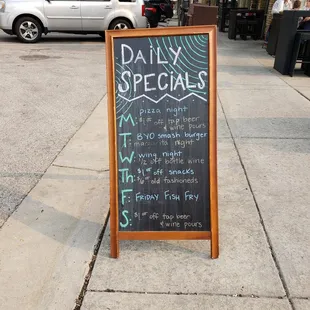 DAILY
SPECIALS
M: pizza night
$1 off tap beer
& wine pours
T: BYO smash burger
margarita night
W: wing night
1/2 off bottle wine
Th: $1 off snacks
old fashioneds
F: FRIDAY FISH FRY
S: $1 off tap beer
& wine pours